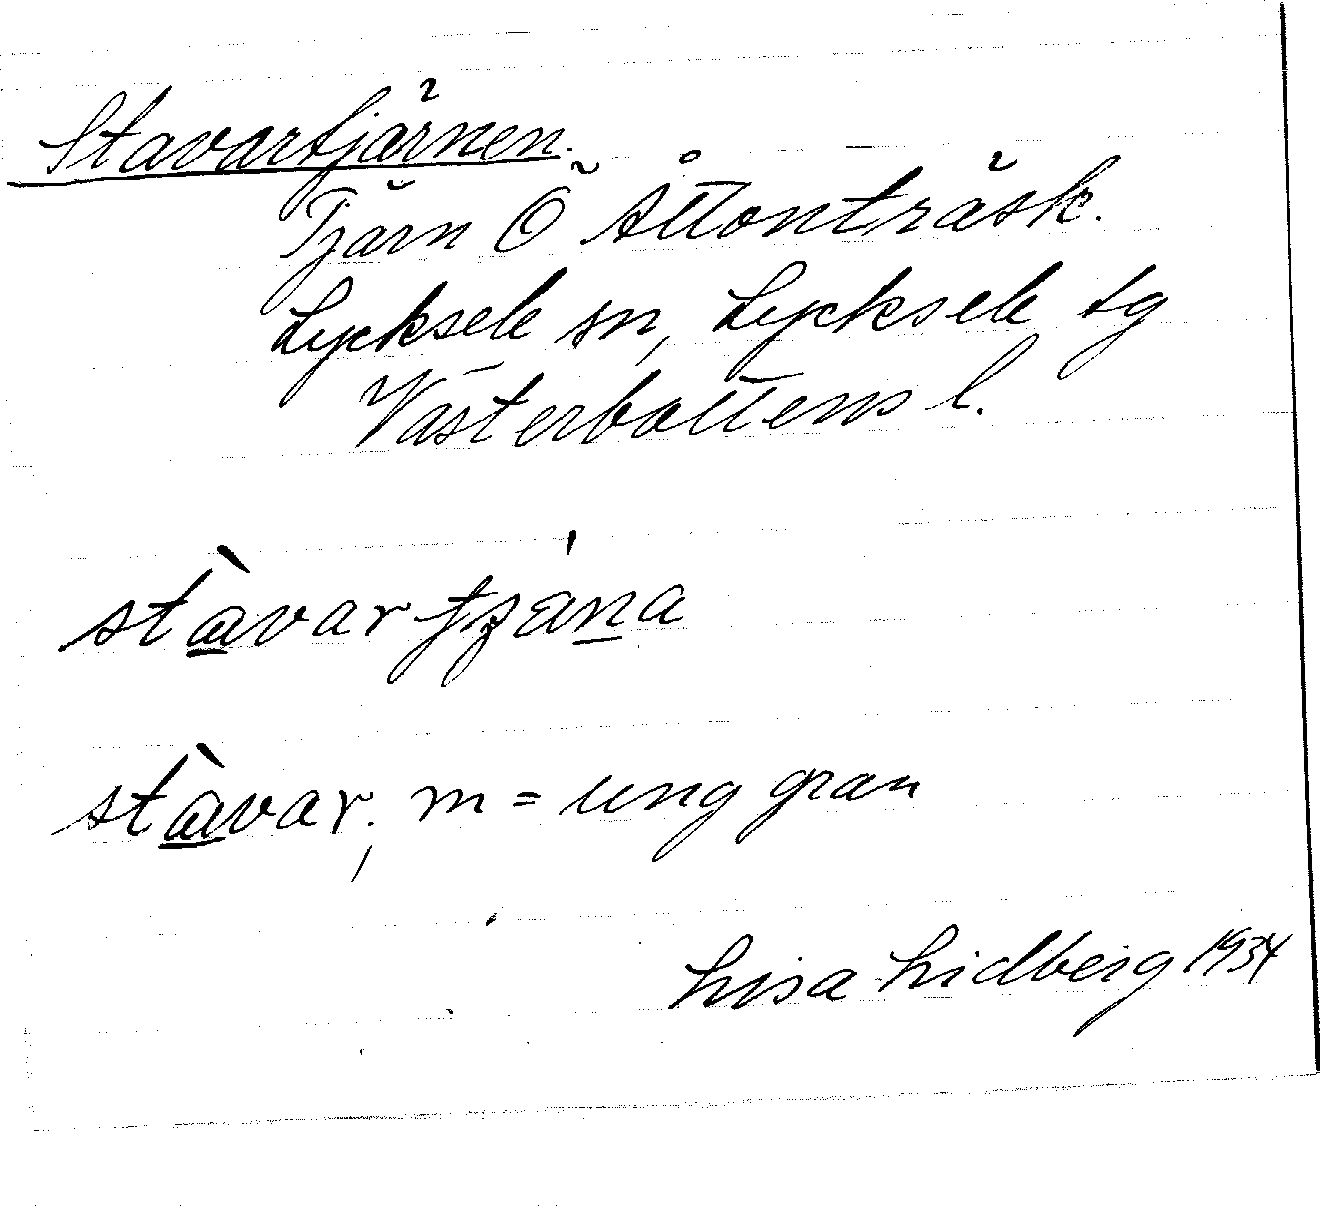 Stavartjärnen.
Tjärn Ö Åttonträsk.
Lycksele sn, Lycksele tg
Västerbottens l.
stàvar tjána
stàvar, m = ung gran
Lisa Lidberg 1934